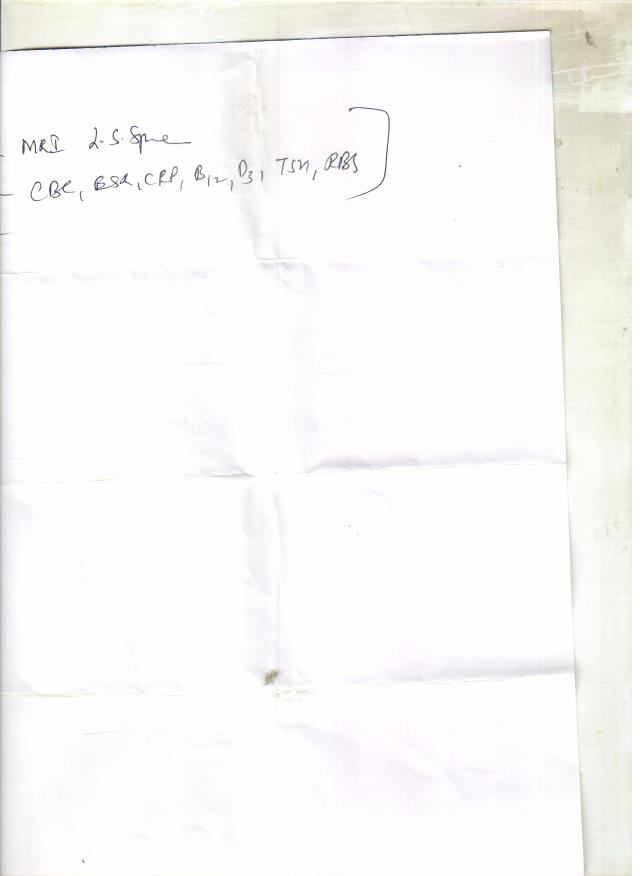 - MRI L.S. Spine
- CBC, ESR, CRP, B12, D3, TSH, RBS